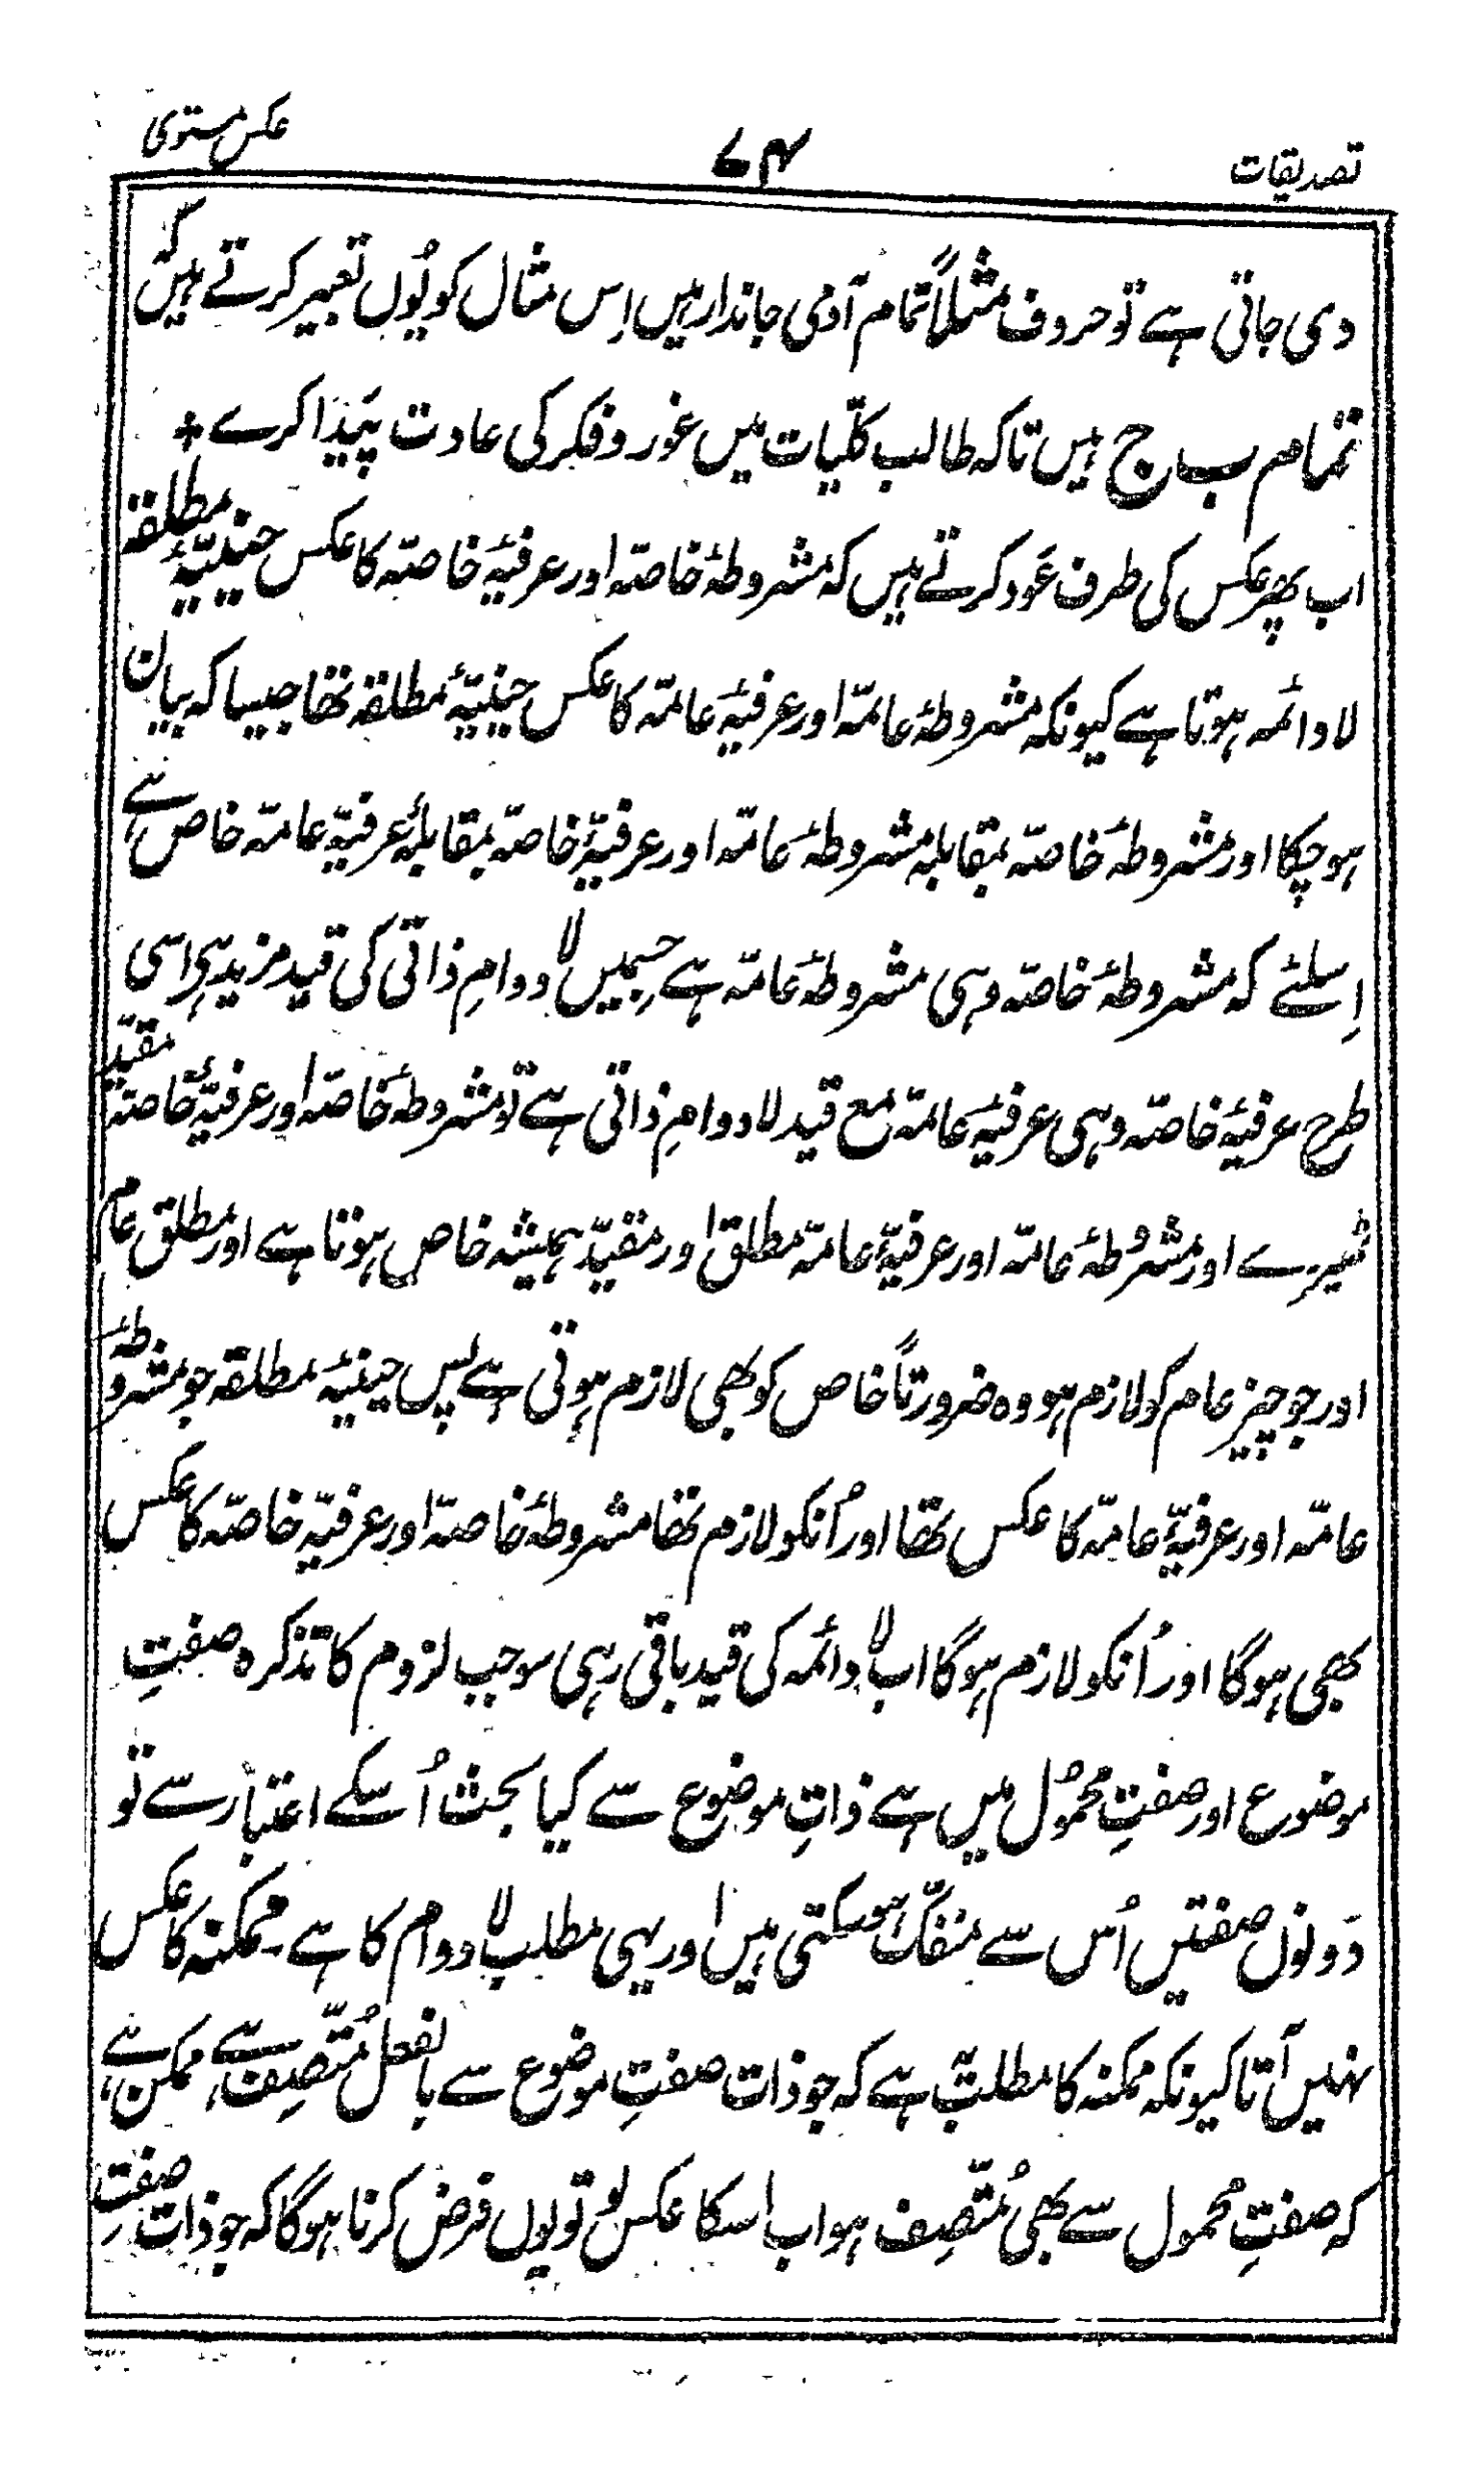 تصدیقات ۷۴ عکس مستوی
دی جاتی ہے تو حروف مثلاً تمام آدمی جاندار ہیں اِس مثال کو یُوں تعبیر کرتے ہیں کہ
تمام ب ج ہیں تاکہ طالب کلّیات میں غور و فکر کی عادت پَیدا کرے +
اب پھر عکس کی طرف عَود کرتے ہیں کہ مشروطۂ خاصّہ اور عرفیۂ خاصّہ کا عکس حینیّۂ مطلقہ
لا دائمہ ہوتا ہے کیونکہ مشروطۂ عامّہ اور عرفیۂ عامّہ کا عکس حینیّۂ مطلقہ تھا جیسا کہ بیان
ہو چکا اور مشروطۂ خاصّہ بمقابلہ مشروطۂ عامّہ اور عرفیّۂ خاصّہ بمقابلۂ عرفیّۂ عامّہ خاص ہے
اِسلئے کہ مشروطۂ خاصّہ وہی مشروطۂ عامّہ ہے جسمیں لا دوامِ ذاتی کی قید مزید ہی اسی
طرح عرفیۂ خاصّہ وہی عرفیۂ عامّہ مع قید لا دوامِ ذاتی ہے تو مشروطۂ خاصّہ اور عرفیّۂ خاصّہ مقیّد
ٹھیرے اور مشروطۂ عامّہ اور عرفیّۂ عامّہ مطلق اور مقیّد ہمیشہ خاص ہوتا ہے اور مطلق عام
اور جو چیز عام کو لازم ہو وہ ضرورتاً خاص کو بھی لازم ہوتی ہے پس حینیۂ مطلقہ جو مشروطۂ
عامّہ اور عرفیّۂ عامّہ کا عکس تھا اور اُنکو لازم تھا مشروطۂ خاصّہ اور عرفیّہ خاصّہ کا عکس
بھی ہوگا اور اُنکو لازم ہوگا اب لا دائمہ کی قید باقی رہی سو جب لزوم کا تذکرہ صفتِ
موضوع اور صفتِ محمُول میں ہے ذاتِ موضوع سے کیا بحث اُسکے اعتبار سے تو
دَونوں صفتیں اُس سے منفکّ ہو سکتی ہیں اور یہی مطلب لا دوام کا ہے۔ ممکنہ کا عکس
نہیں آتا کیونکہ ممکنہ کا مطلب یہ ہے کہ جو ذات صفتِ موضوع سے بالفعل مُتّصِف ہے ممکن ہے
کہ صفتِ محمول سے بھی مُتّصِف ہو اب اسکا عکس لو تو یوں فرض کرنا ہوگا کہ جو ذات صفتِ